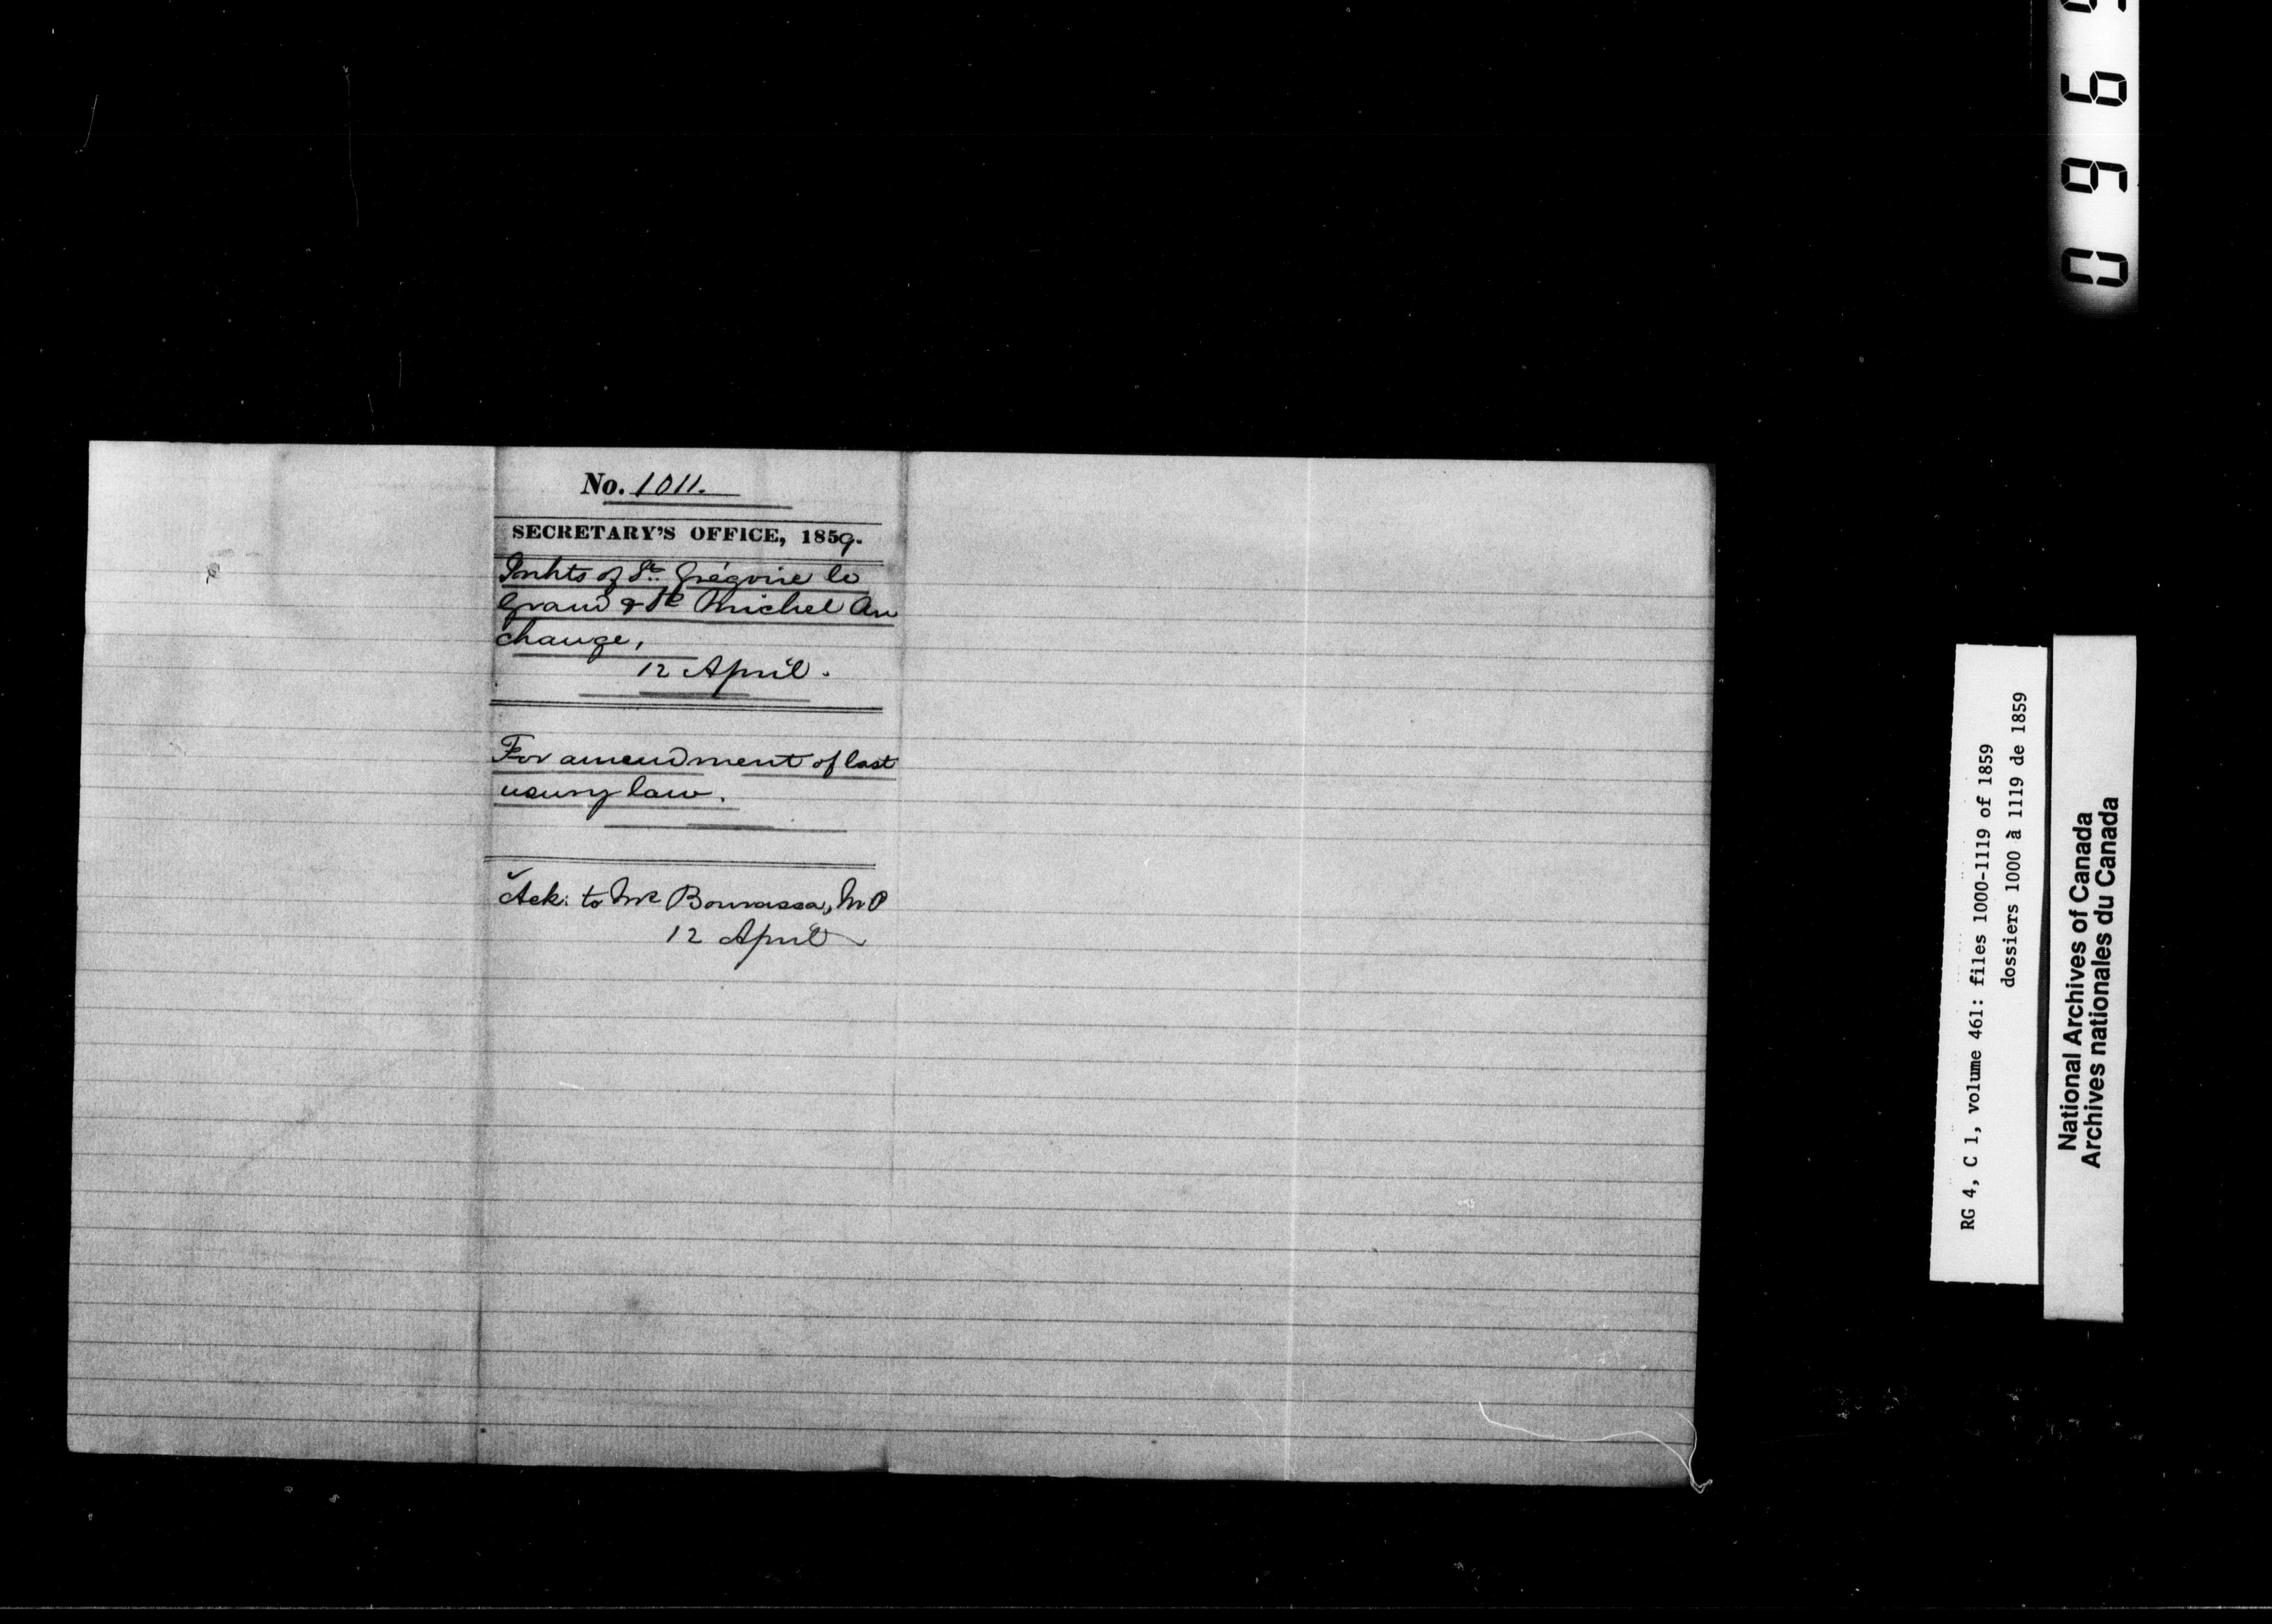 No. 1011.
SECRETARY'S OFFICE, 1859.
Inhts of St. Grégoire le
Grand & St Michel Ar
change,
12 April.
For amendment of last
usury law.
Ack: to Mr Bourassa, M.P
12 April
RG 4, C 1, volume 461: files 1000-1119 of 1859
dossiers 1000 à 1119 de 1859
National Archives of Canada
Archives nationales du Canada
0969